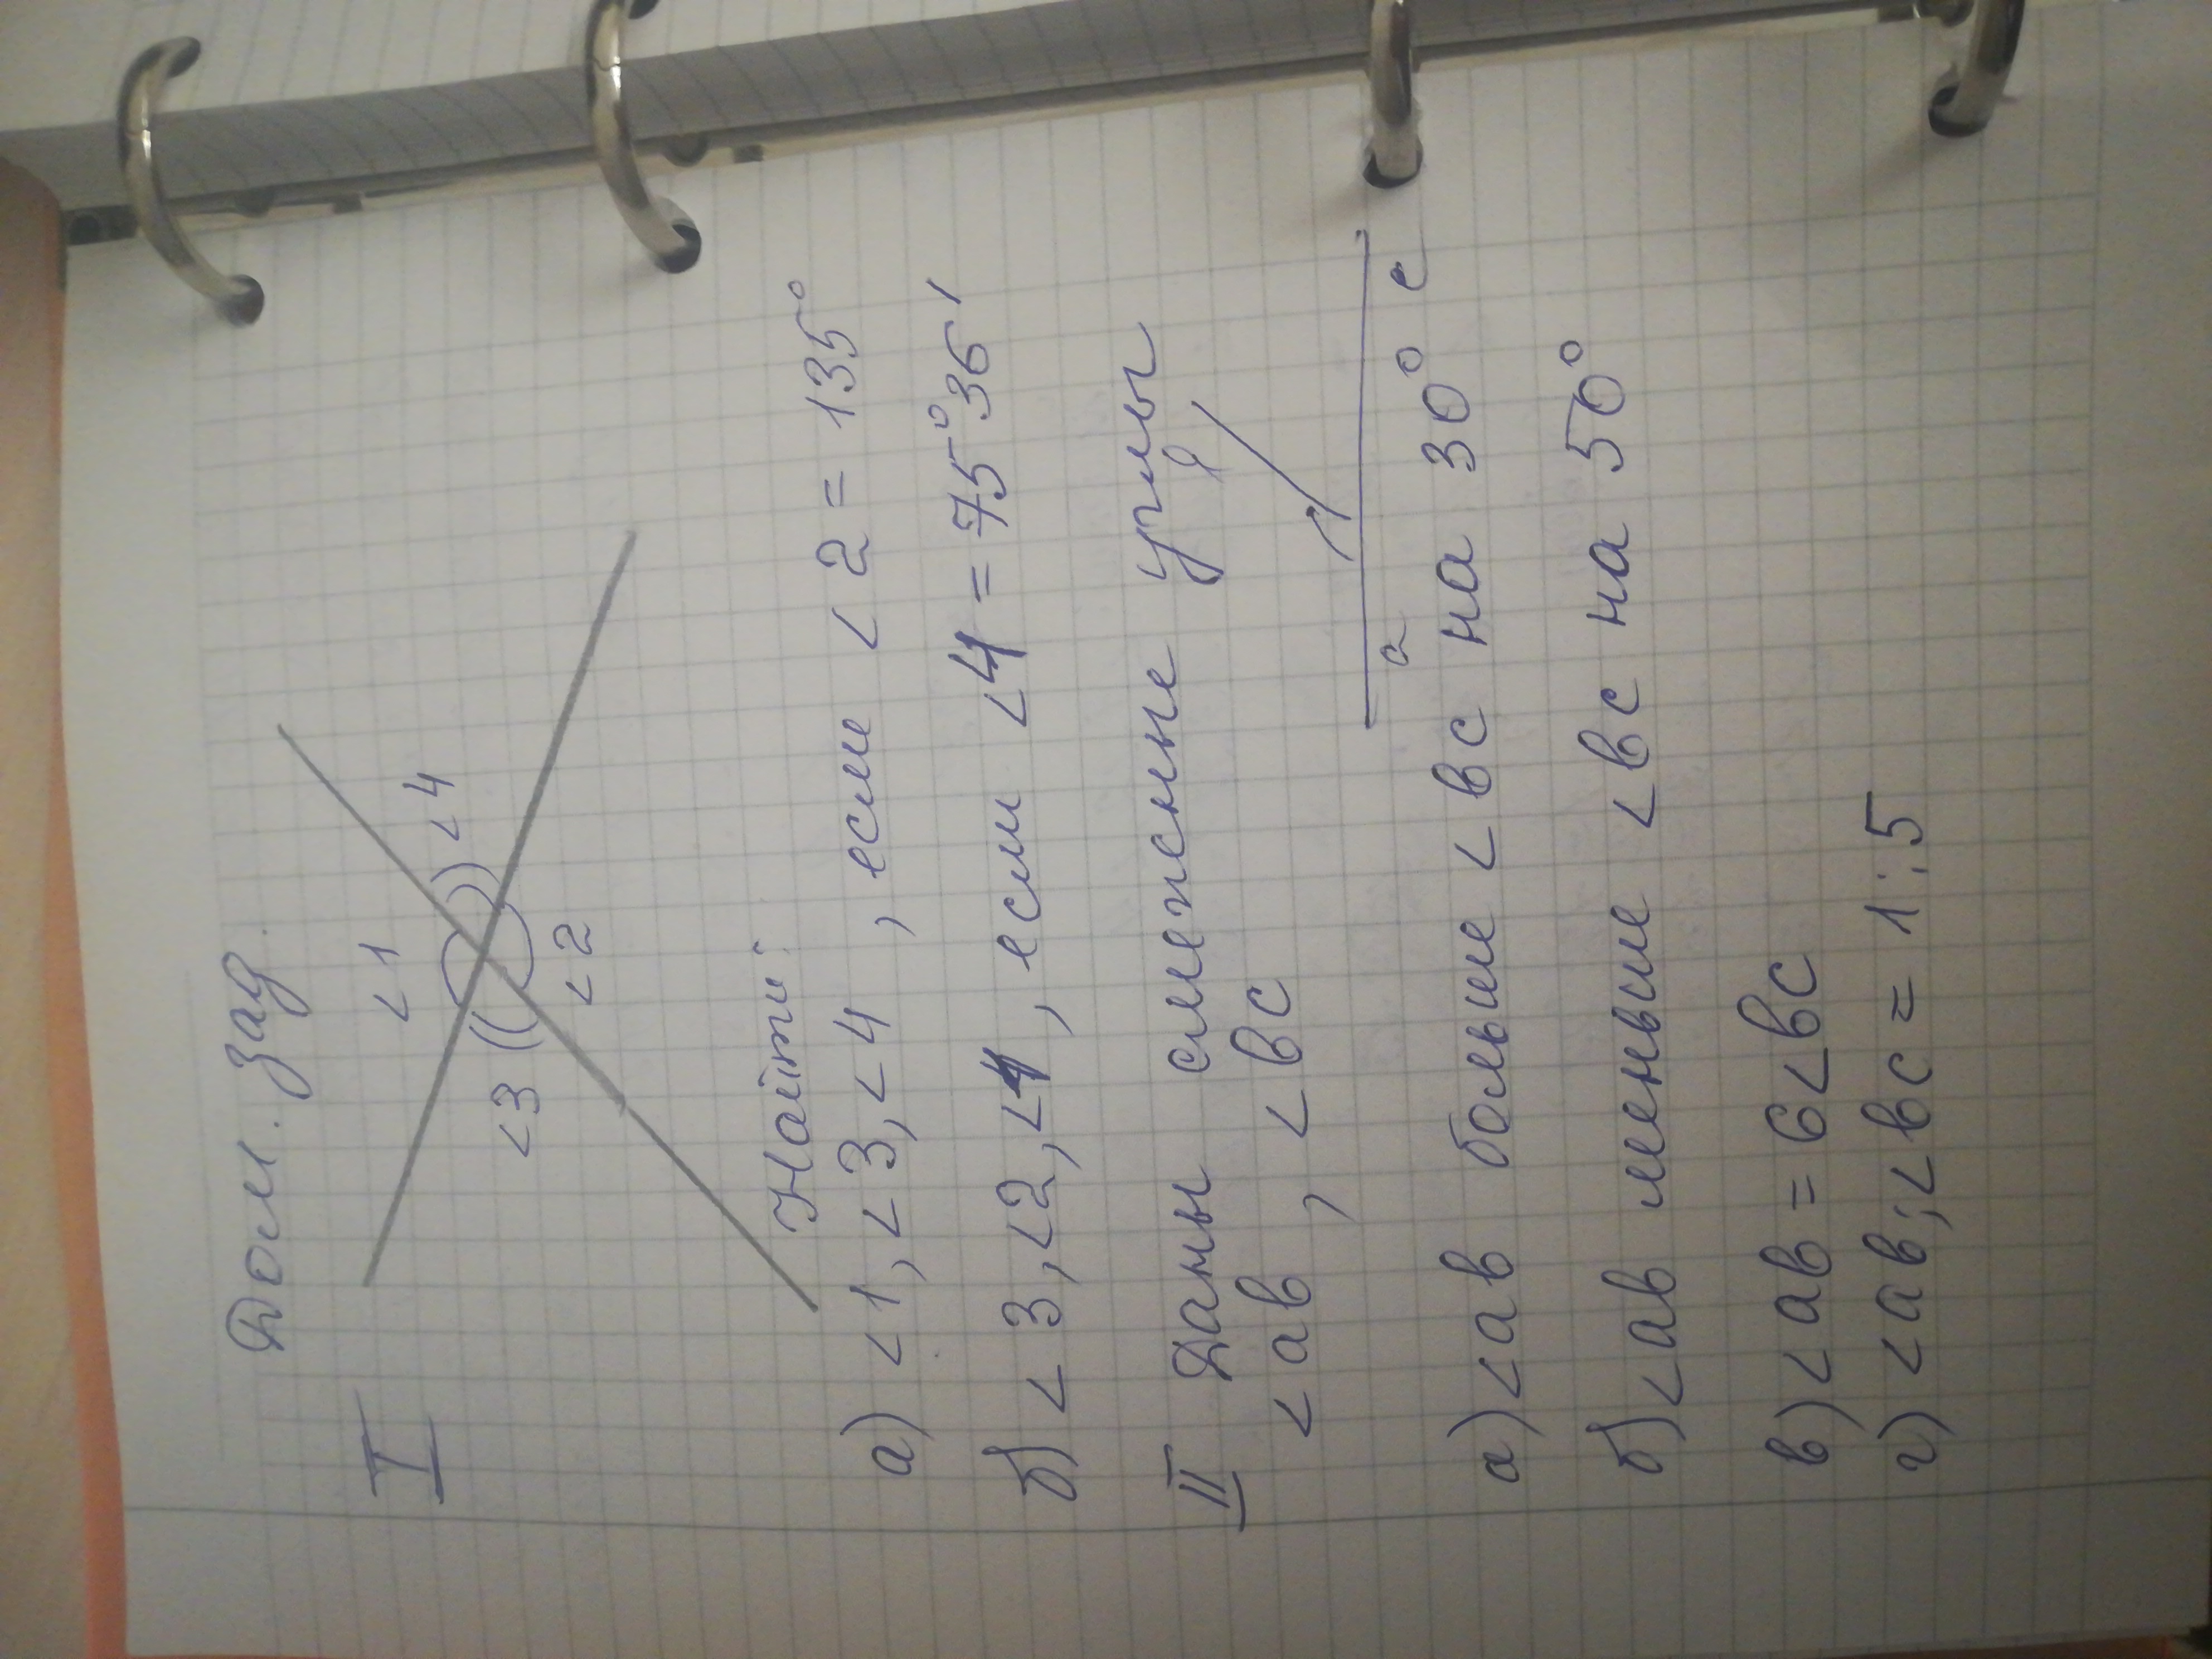 Дом. зад.
I
<1
<4
<3
<2
Найти:
а) <1, <3, <4, если <2 = 135°
б) <3, <2, <4, если <4 = 75°36'
II Даны смежные углы
<ав, <вс
в
а с
а) <ав больше <вс на 30°
б) <ав меньше <вс на 50°
в) <ав = 6<вс
г) <ав; <вс = 1:5